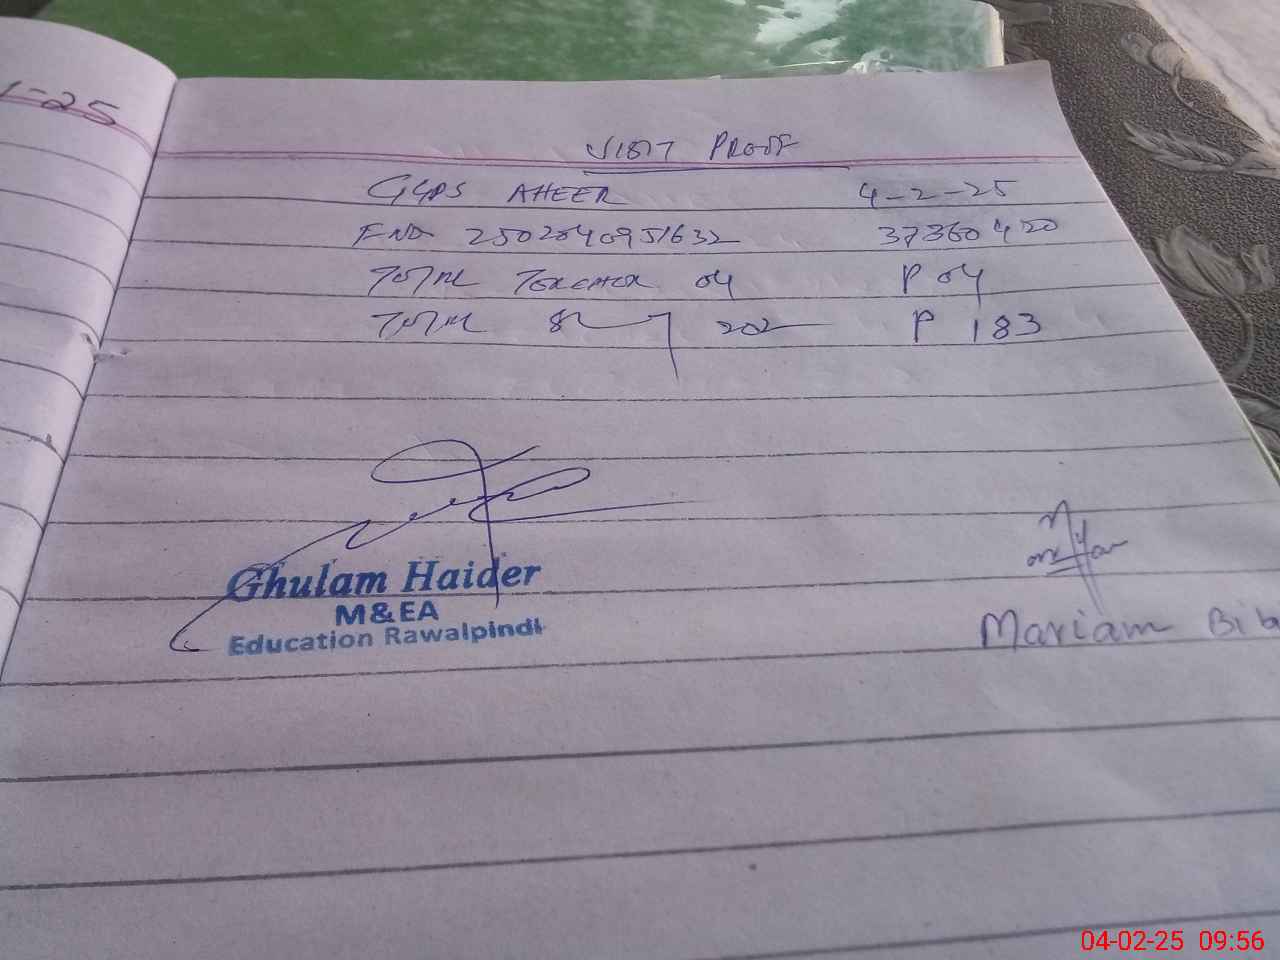 1-25
VISIT PROOF
GGPS AHEER 4-2-25
END 2502040951632 37360420
TOTAL TEACHER 04 P 04
TOTAL 202 P 183
Ghulam Haider
M&EA
Education Rawalpindi
Mariam Bib
04-02-25 09:56